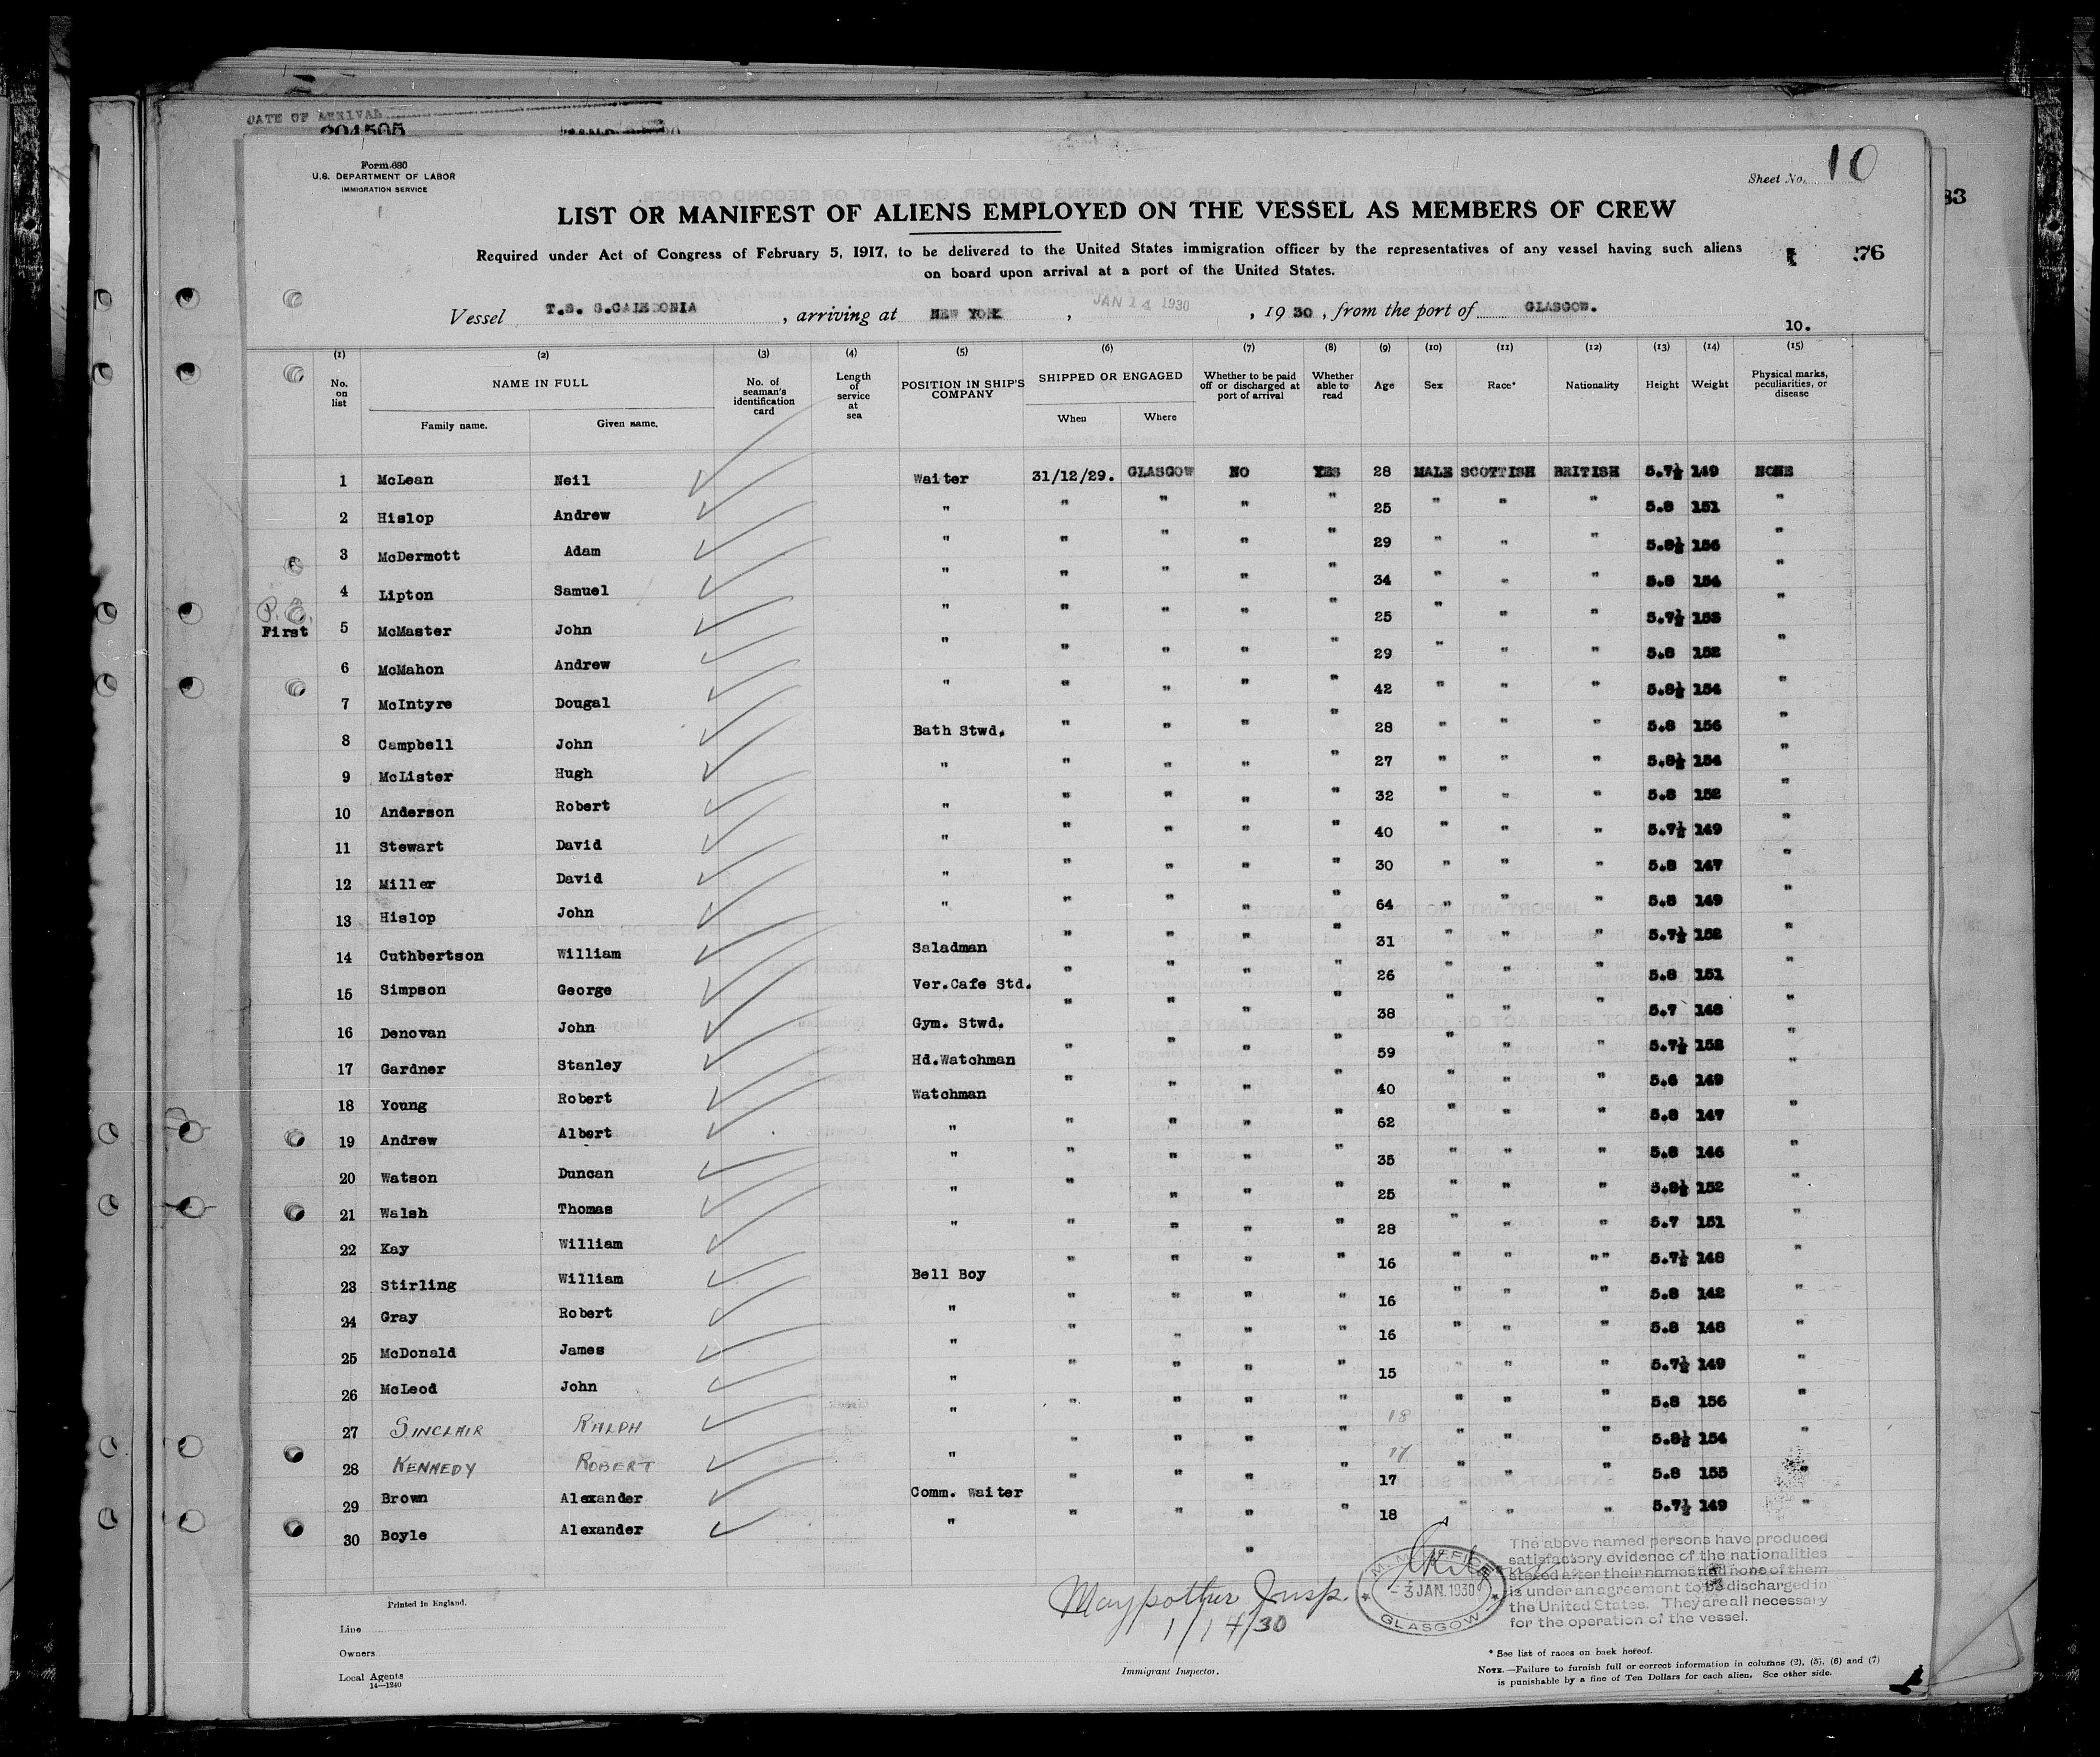 DATE OF ARRIVAL
204505
Form 680
U.S. DEPARTMENT OF LABOR
IMMIGRATION SERVICE
Sheet No. 10
83
LIST OR MANIFEST OF ALIENS EMPLOYED ON THE VESSEL AS MEMBERS OF CREW
Required under Act of Congress of February 5, 1917, to be delivered to the United States immigration officer by the representatives of any vessel having such aliens
on board upon arrival at a port of the United States.
76
Vessel T.S. S.CALEDONIA , arriving at NEW YORK , JAN 14 1930 , 1930 , from the port of GLASGOW.
10.
(1) (2) (3) (4) (5) (6) (7) (8) (9) (10) (11) (12) (13) (14) (15)
No. on list NAME IN FULL Family name. Given name. No. of seaman's identification card Length of service at sea POSITION IN SHIP'S COMPANY SHIPPED OR ENGAGED When Where Whether to be paid off or discharged at port of arrival Whether able to read Age Sex Race* Nationality Height Weight Physical marks, peculiarities, or disease
1 McLean Neil Waiter 31/12/29. GLASGOW NO YES 28 MALE SCOTTISH BRITISH 5.7½ 149 NONE
2 Hislop Andrew " " " " " 25 " " " 5.8 151 "
3 McDermott Adam " " " " " 29 " " " 5.8½ 156 "
4 Lipton Samuel " " " " " 34 " " " 5.8 154 "
First 5 McMaster John " " " " " 25 " " " 5.7½ 153 "
6 McMahon Andrew " " " " " 29 " " " 5.8 152 "
7 McIntyre Dougal " " " " " 42 " " " 5.8½ 154 "
8 Campbell John Bath Stwd. " " " " 28 " " " 5.8 156 "
9 McLister Hugh " " " " " 27 " " " 5.8½ 154 "
10 Anderson Robert " " " " " 32 " " " 5.8 152 "
11 Stewart David " " " " " 40 " " " 5.7½ 149 "
12 Miller David " " " " " 30 " " " 5.8 147 "
13 Hislop John " " " " " 64 " " " 5.8 149 "
14 Cuthbertson William Saladman " " " " 31 " " " 5.7½ 152 "
15 Simpson George Ver.Cafe Std. " " " " 26 " " " 5.8 151 "
16 Denovan John Gym. Stwd. " " " " 38 " " " 5.7 148 "
17 Gardner Stanley Hd.Watchman " " " " 59 " " " 5.7½ 158 "
18 Young Robert Watchman " " " " 40 " " " 5.6 149 "
19 Andrew Albert " " " " " 62 " " " 5.8 147 "
20 Watson Duncan " " " " " 35 " " " 5.8 146 "
21 Walsh Thomas " " " " " 25 " " " 5.8½ 152 "
22 Kay William " " " " " 28 " " " 5.7 151 "
23 Stirling William Bell Boy " " " " 16 " " " " 5.7½ 148 "
24 Gray Robert " " " " " 16 " " " 5.8 142 "
25 McDonald James " " " " " 16 " " " 5.8 148 "
26 McLeod John " " " " " 15 " " " 5.7½ 149 "
27 SINCLAIR RALPH " " " " " 18 " " " 5.8 156 "
28 KENNEDY ROBERT " " " " " 17 " " " 5.8½ 154 "
29 Brown Alexander Comm. Waiter " " " " 17 " " " 5.8 155 "
30 Boyle Alexander " " " " " 18 " " " 5.7½ 149 "
"
The above named persons have produced
satisfactory evidence of the nationalities
stated after their names and none of them
is under an agreement to be discharged in
the United States. They are all necessary
for the operation of the vessel.
M.M. OFFICE
- 3 JAN. 1930
GLASGOW
Maypother Insp.
1/14/30
Immigrant Inspector.
Printed in England.
Line
Owners
Local Agents
14—1240
* See list of races on back hereof.
NOTE.—Failure to furnish full or correct information in columns (2), (5), (6) and (7)
is punishable by a fine of Ten Dollars for each alien. See other side.